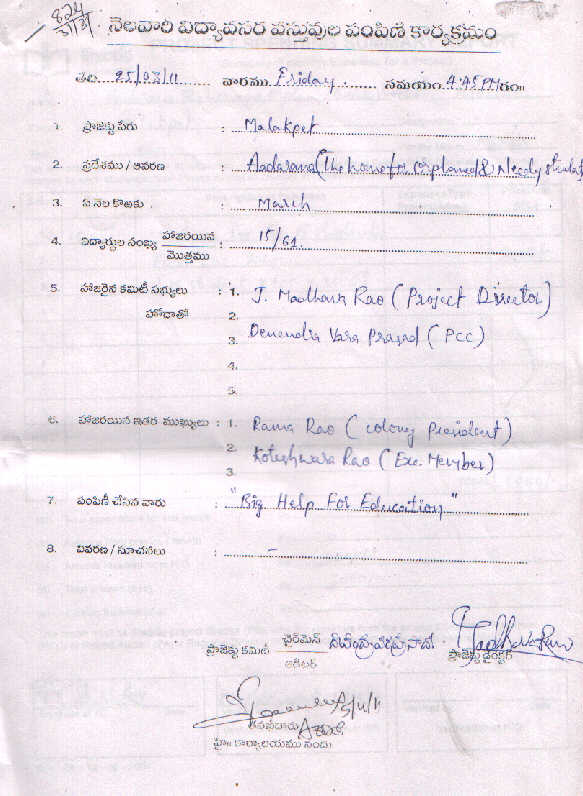 824
31/3/11
నెలవారి విద్యావసర వస్తువుల పంపిణీ కార్యక్రమం
తేది 25/03/11 వారము Friday సమయం 4.45PM గం॥
1. ప్రాజెక్టు పేరు : Malakpet
2. ప్రదేశము / ఆవరణ : Aadarana (The home for orphaned & Needy students
3. ఏ నెల కొఱకు : March
4. విద్యార్థుల సంఖ్య హాజరయిన : 15/61
మొత్తము
5. హాజరైన కమిటీ సభ్యులు : 1. J. Madhava Rao (Project Director)
హోదాతో 2.
3. Devendra Vara Prasad (PCC)
4.
5.
6. హాజరయిన ఇతర ముఖ్యులు : 1. Rama Rao (colony President)
2. Koteshwara Rao (Exe. Member)
3.
7. పంపిణీ చేసిన వారు : "Big Help For Education"
8. వివరణ / సూచనలు : -
ప్రాజెక్టు కమిటి చైర్‌మెన్ దేవేంద్రవరప్రసాద్ ప్రాజెక్టు డైరెక్టర్
ఆడిటర్
ప్రా॥ కార్యాలయము నందు